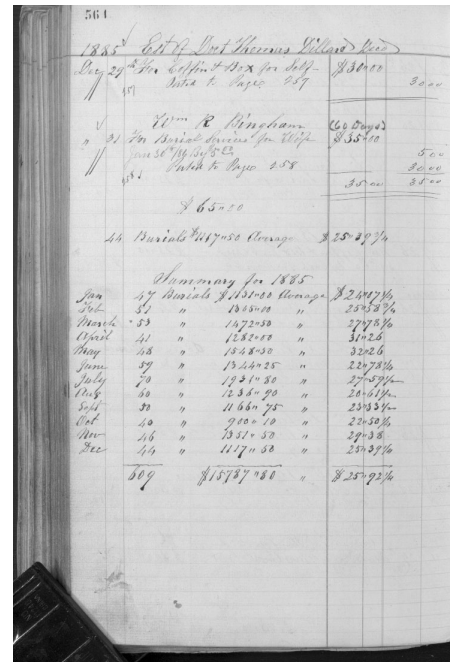 564
1885 Est of Doct Thomas Dillard Decd
Dec 29 For Coffin & Box for Self $30"00
" 457 Posted to Page 457 30 00
Wm R Bingham (60 Days)
" 31 For Burial Services for Wife $35"00
" 5 00
458 Posted to Page 458 30 00
35 00 35 00
$65"00
44 Burials $1117"50 Average $25"39 3/4
Summary for 1885
Jan 47 Burials $1131"00 Average $24"07 1/4
Feb 51 " 1305"00 " 25"58 3/4
March 53 " 1472"50 " 27"78 1/4
April 41 " 1282"00 " 31"26
May 48 " 1548"50 " 32"26
June 59 " 1344"25 " 22"78 1/4
July 70 " 1931"80 " 27"59 1/2
Aug 60 " 1236"90 " 20"61 1/2
Sept 50 " 1166"75 " 23"33 1/2
Oct 40 " 900"10 " 22"50 1/4
Nov 46 " 1351"50 " 29"38
Dec 44 " 1117"50 " 25"39 3/4
609 $15787"80 " $25"92 1/4